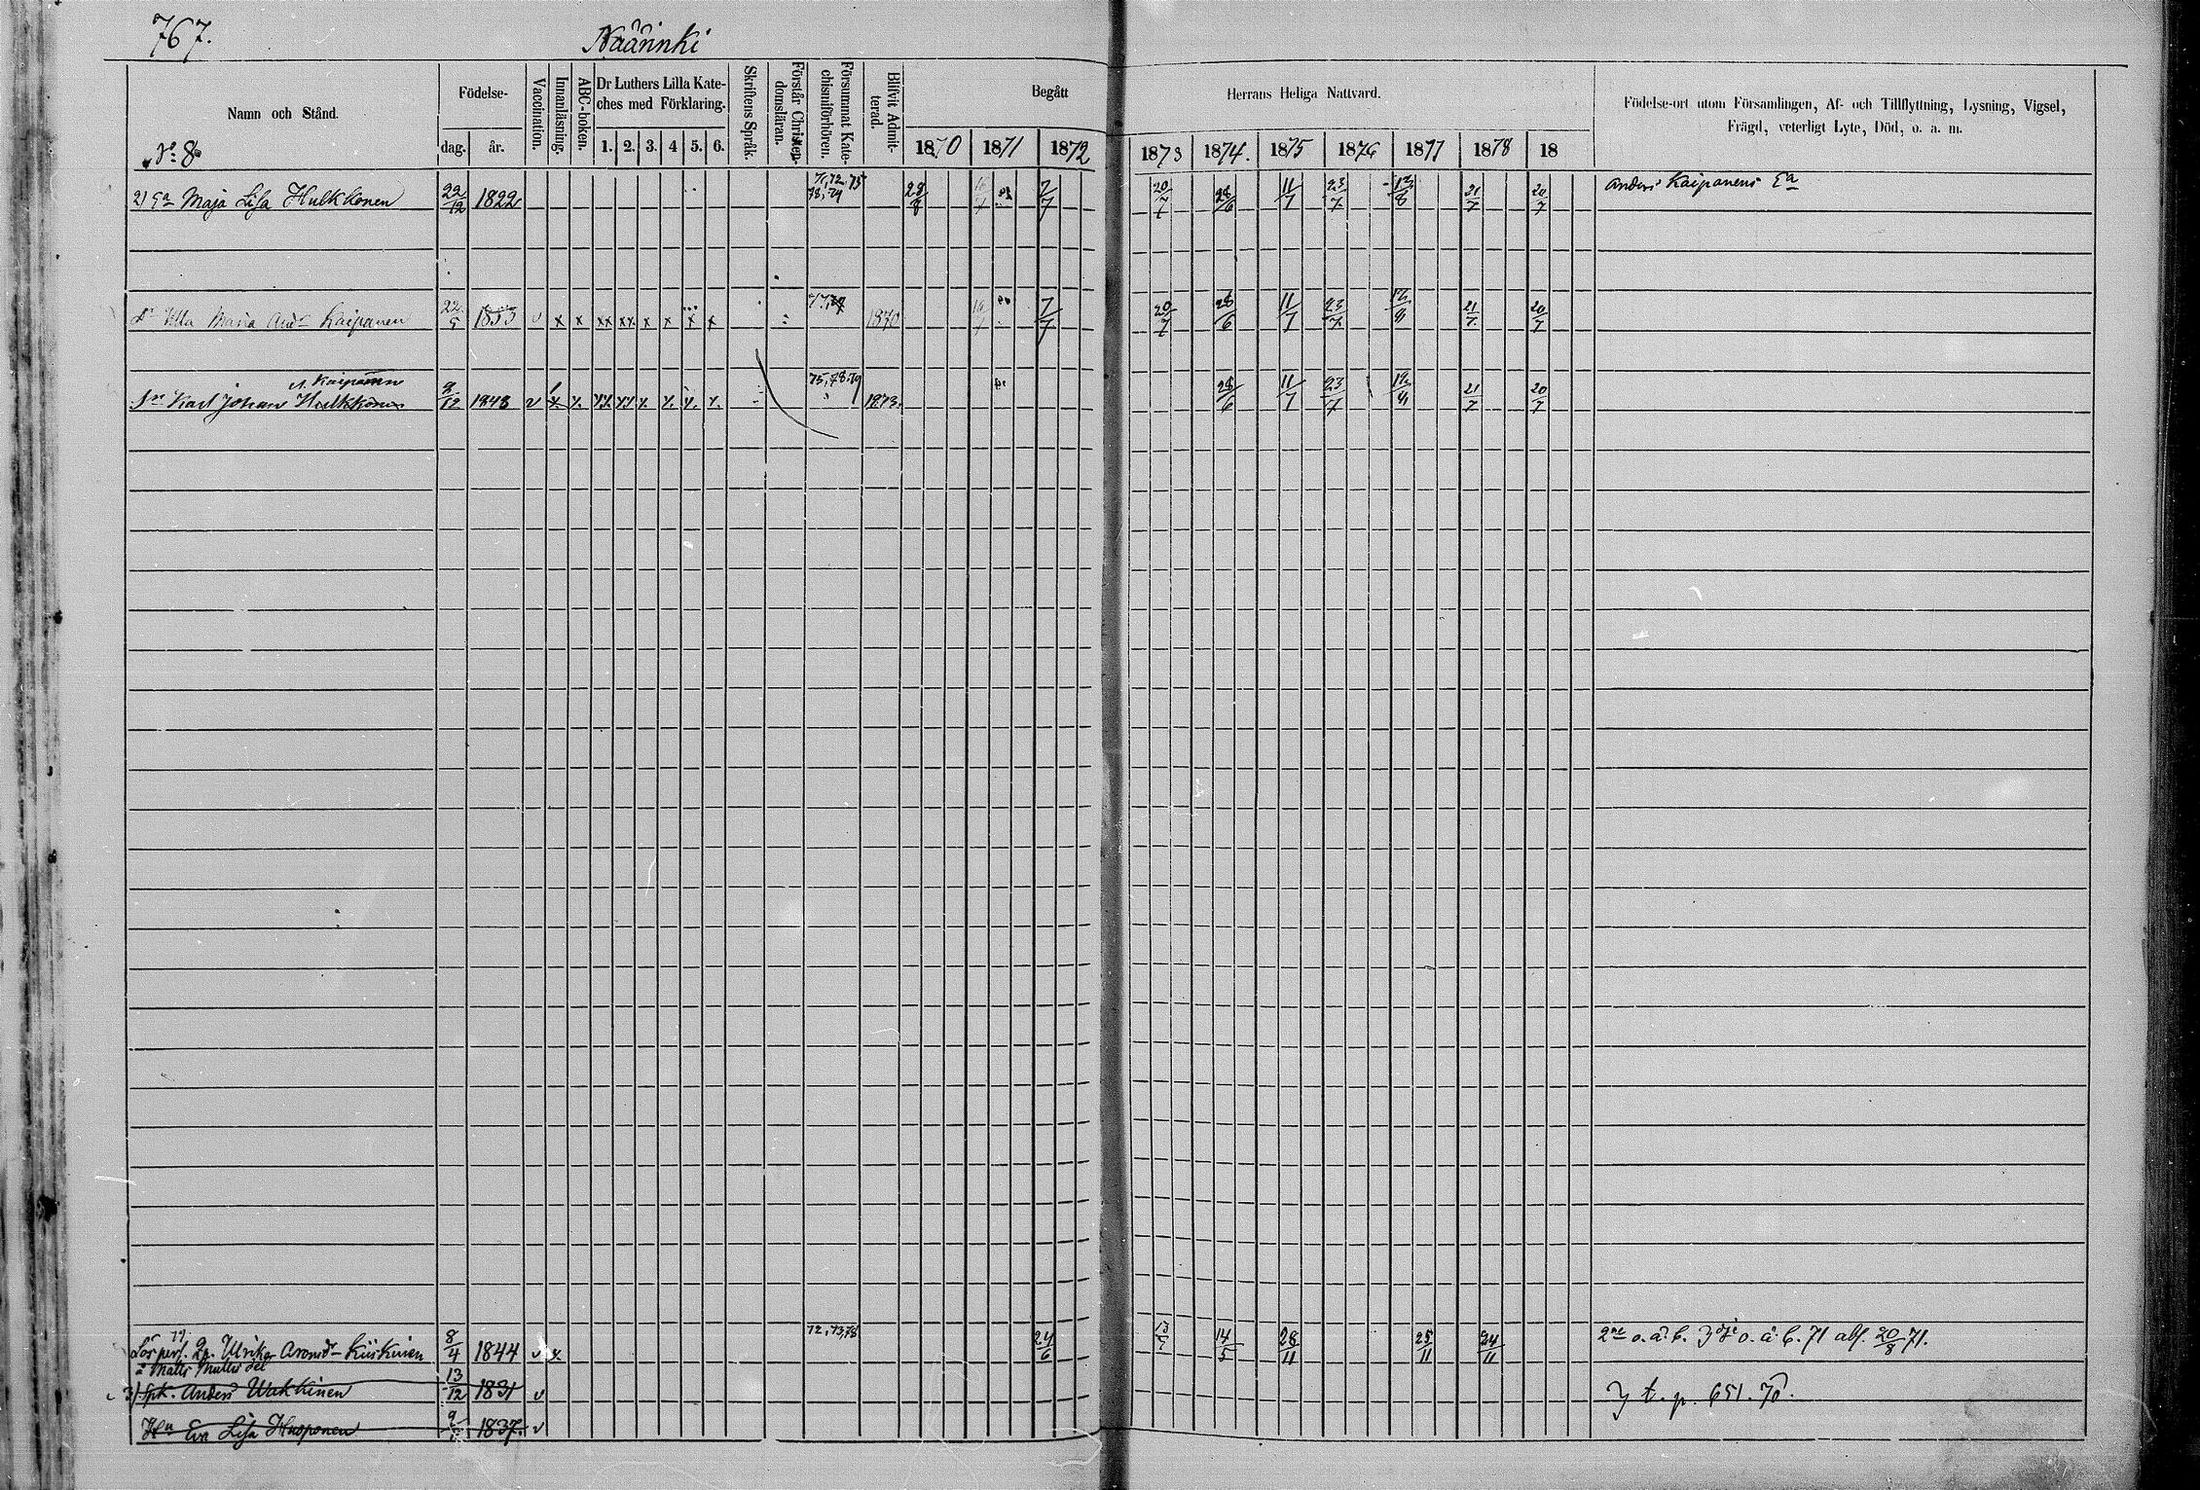 767.
Näärinki
Namn och Stånd.
Födelse-
dag.
år.
Vaccination.
Innanläsning.
ABC-boken.
Dr Luthers Lilla Kate-
ches med Förklaring.
1. 2. 3. 4 5. 6.
Skriftens Språk.
Förstår Christen-
domsläran.
Försummat Kate-
chismiförhören.
Blifvit Admit-
terad.
Begått
Herrans Heliga Nattvard.
1870 1871 1872 1873 1874. 1875 1876 1877 1878 18
Födelse-ort utom Församlingen, Af- och Tillflyttning, Lysning, Vigsel,
Frägd, veterligt Lyte, Död, o. a. m.
No 8
2) Ea Maja Lisa Hulkkonen 22/12 1822 71,72.75 28/8 16/7 7/7 20/7 28/6 11/7 23/7 12/8 21/7 20/7 Anders Kaipanens Ea
78,79
Dr Ulla Maria Andr Kaipanen 22/5 1853 v x x xx xx x x x x 77, 1870 16/7 7/7 20/7 28/6 11/7 23/7 21/7 20/7
A. Kaipanen
Sn Karl Johan Hulkkonen 9/12 1848 v x. x. xx xx x. x. x. x. 75,78,79 1873. 28/6 11/7 23/7 21/7 20/7
Lös pers. Ulrika Aronsdr Kiiskinen 8/4 1844 v x 72,73,78 24/6 14/5 28/11 25/11 24/11 2ne o. ä. b. o. ä. b. 71 abs. 20/8 71.
à Matts
3) Spk. Anders Wakkinen 13/12 1831 v t. p. 651. 70.
Hu Eva Lisa Husponen 1837. v